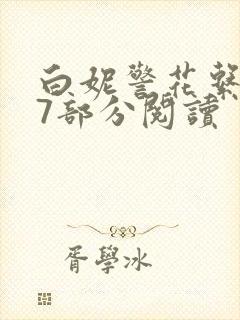 白妮警花繫
7部分閱讀
胥學冰